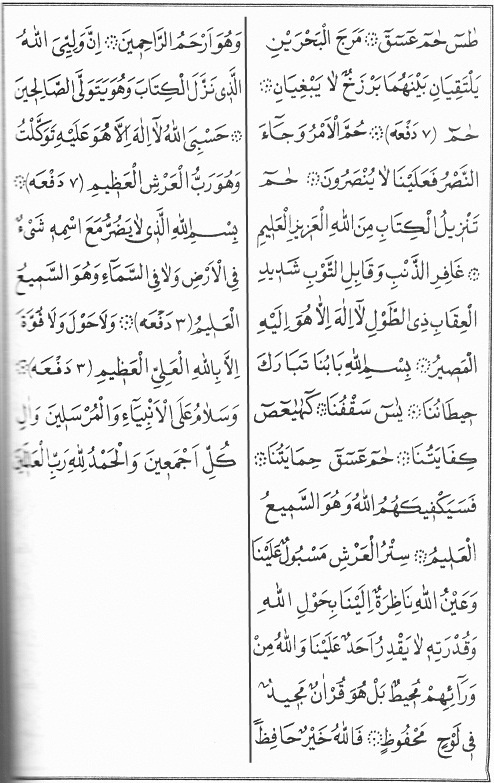 طٰسٓ حٰمٓ عٓسٓقٓ ۞ مَرَجَ الْبَحْرَيْنِ
يَلْتَقِيَانِ بَيْنَهُمَا بَرْزَخٌ لَا يَبْغِيَانِ ۞
حٰمٓ (٧ دَفْعَه) ۞ حُمَّ الْاَمْرُ وَجَٓاءَ
النَّصْرُ فَعَلَيْنَا لَا يُنْصَرُونَ ۞ حٰمٓ
تَنْزِيلُ الْكِتَابِ مِنَ اللّٰهِ الْعَزِيزِ الْعَلِيمِ
۞ غَافِرِ الذَّنْبِ وَقَابِلِ التَّوْبِ شَدِيدِ
الْعِقَابِ ذِى الطَّوْلِ لَٓا اِلٰهَ اِلَّا هُوَ اِلَيْهِ
الْمَصِيرُ ۞ بِسْمِ اللّٰهِ بَابُنَا تَبَارَكَ
حِيطَانُنَا ۞ يٰسٓ سَقْفُنَا ۞ كٓهٰيٰعٓصٓ
كِفَايَتُنَا ۞ حٰمٓ عٓسٓقٓ حِمَايَتُنَا ۞
فَسَيَكْفِيكَهُمُ اللّٰهُ وَهُوَ السَّمِيعُ
الْعَلِيمُ ۞ سِتْرُ الْعَرْشِ مَسْبُولٌ عَلَيْنَا
وَعَيْنُ اللّٰهِ نَاظِرَةٌ اِلَيْنَا بِحَوْلِ اللّٰهِ
وَقُدْرَتِهِ لَا يَقْدِرُ اَحَدٌ عَلَيْنَا وَاللّٰهُ مِنْ
وَرَٓائِهِمْ مُحِيطٌ بَلْ هُوَ قُرْاٰنٌ مَجِيدٌ
فِى لَوْحٍ مَحْفُوظٍ ۞ فَاللّٰهُ خَيْرٌ حَافِظًا
وَهُوَ اَرْحَمُ الرَّاحِمِينَ ۞ اِنَّ وَلِيِّىَ اللّٰهُ
الَّذِى نَزَّلَ الْكِتَابَ وَهُوَ يَتَوَلَّى الصَّالِحِينَ
۞ حَسْبِىَ اللّٰهُ لَٓا اِلٰهَ اِلَّا هُوَ عَلَيْهِ تَوَكَّلْتُ
وَهُوَ رَبُّ الْعَرْشِ الْعَظِيمِ (٧ دَفْعَه) ۞
بِسْمِ اللّٰهِ الَّذِى لَا يَضُرُّ مَعَ اسْمِهِ شَىْءٌ
فِى الْاَرْضِ وَلَا فِى السَّمَٓاءِ وَهُوَ السَّمِيعُ
الْعَلِيمُ (٣ دَفْعَه) ۞ وَلَا حَوْلَ وَلَا قُوَّةَ
اِلَّا بِاللّٰهِ الْعَلِىِّ الْعَظِيمِ (٣ دَفْعَه) ۞
وَسَلَامٌ عَلَى الْاَنْبِيَٓاءِ وَالْمُرْسَلِينَ وَاٰلِ
كُلٍّ اَجْمَعِينَ وَالْحَمْدُ لِلّٰهِ رَبِّ الْعَالَمِينَ